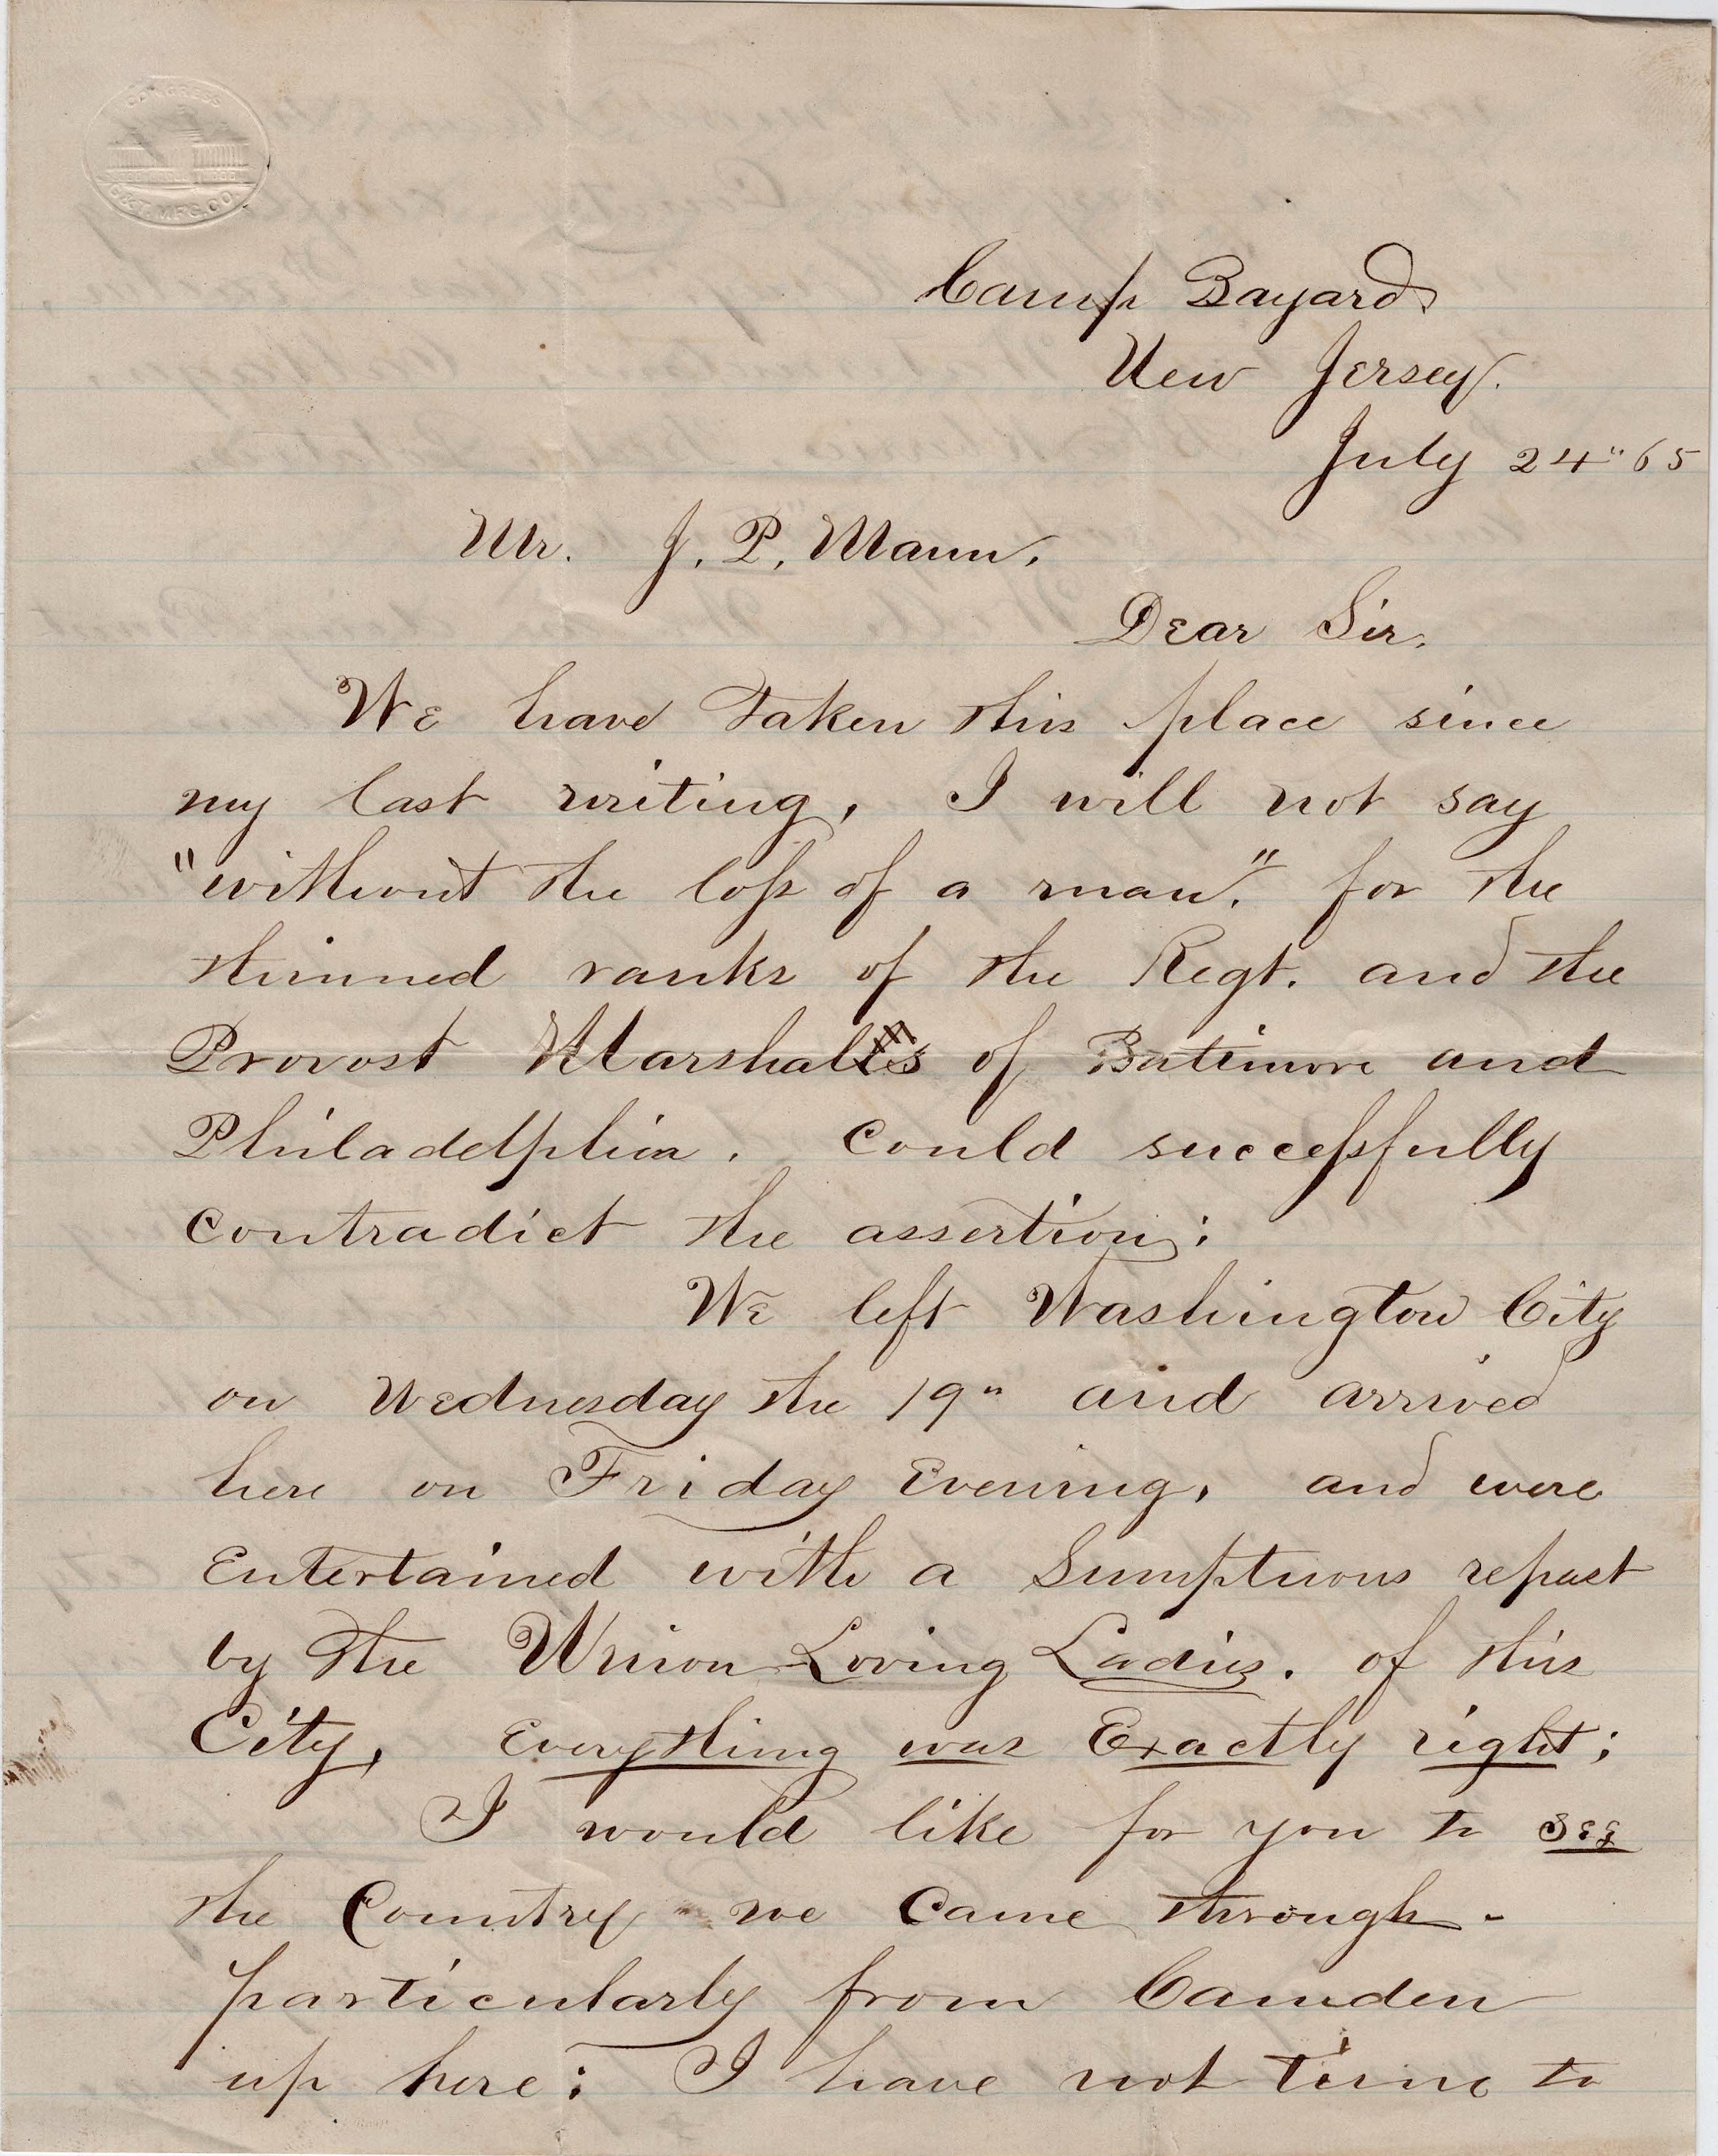 CONGRESS
P&T. MFG. CO.
Camp Bayard
New Jersey.
July 24" 65
Mr. J. P. Mann.
Dear Sir.
We have taken this place since
my last writing, I will not say
"without the loss of a man". for the
thinned ranks of the Regt. and the
Provost Marshals of Batimore and
Philadelphia. could successfully
contradict the assertion;
We left Washington City
on Wednesday the 19" and arrived
here on Friday Evening, and were
Entertained with a Sumptuous repast
by the Union Loving Ladies. of this
City, Everything was Exactly right;
I would like for you to see
the Country we came through-
particularly from Camden
up here; I have not time to